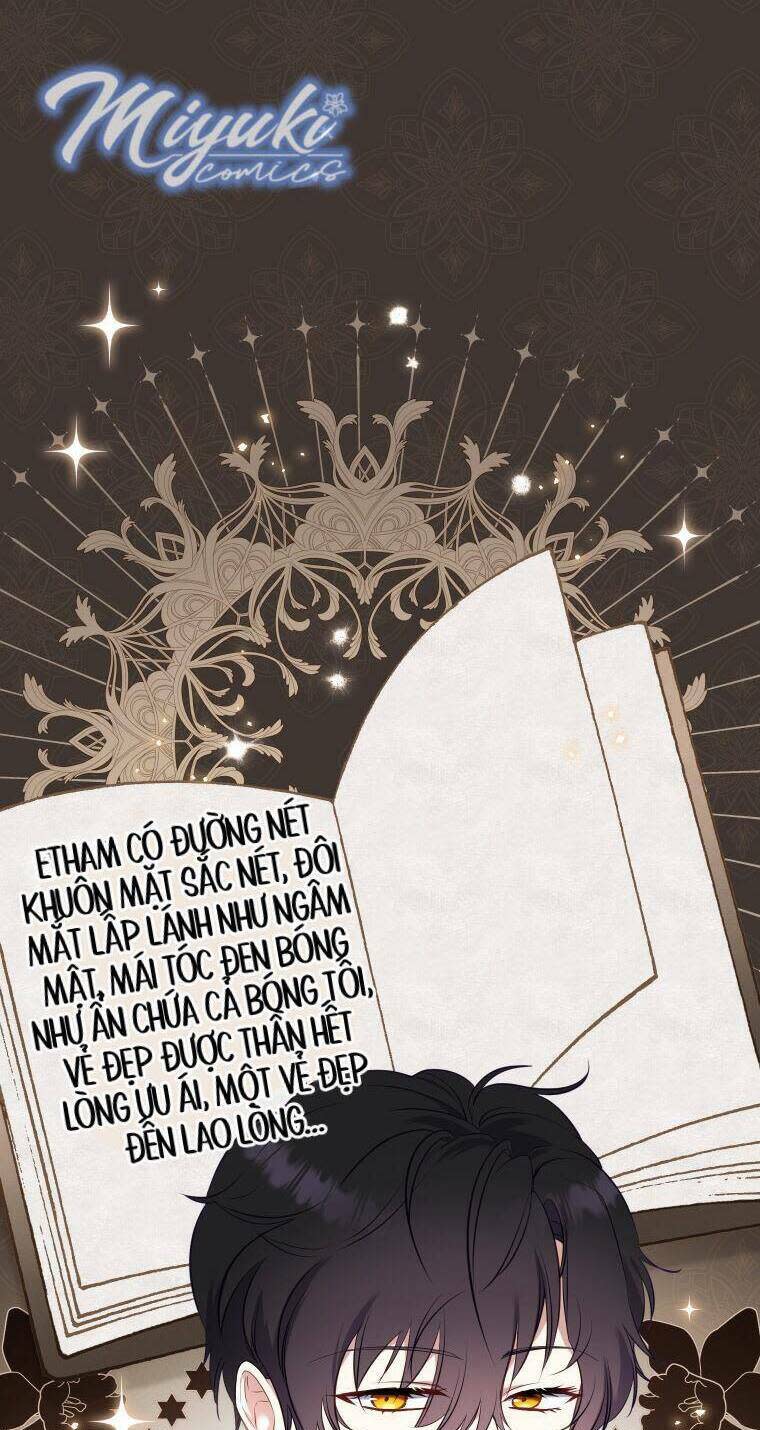 Miyuki
comics
ETHAM CÓ ĐƯỜNG NÉT
KHUÔN MẶT SẮC NÉT, ĐÔI
MẮT LẤP LÁNH NHƯ NGÂM
MẬT, MÁI TÓC ĐEN BÓNG
NHƯ ẨN CHỨA CẢ BÓNG TỐI,
VẺ ĐẸP ĐƯỢC THẦN HẾT
LÒNG ƯU ÁI, MỘT VẺ ĐẸP
ĐẾN LAO LÒNG...